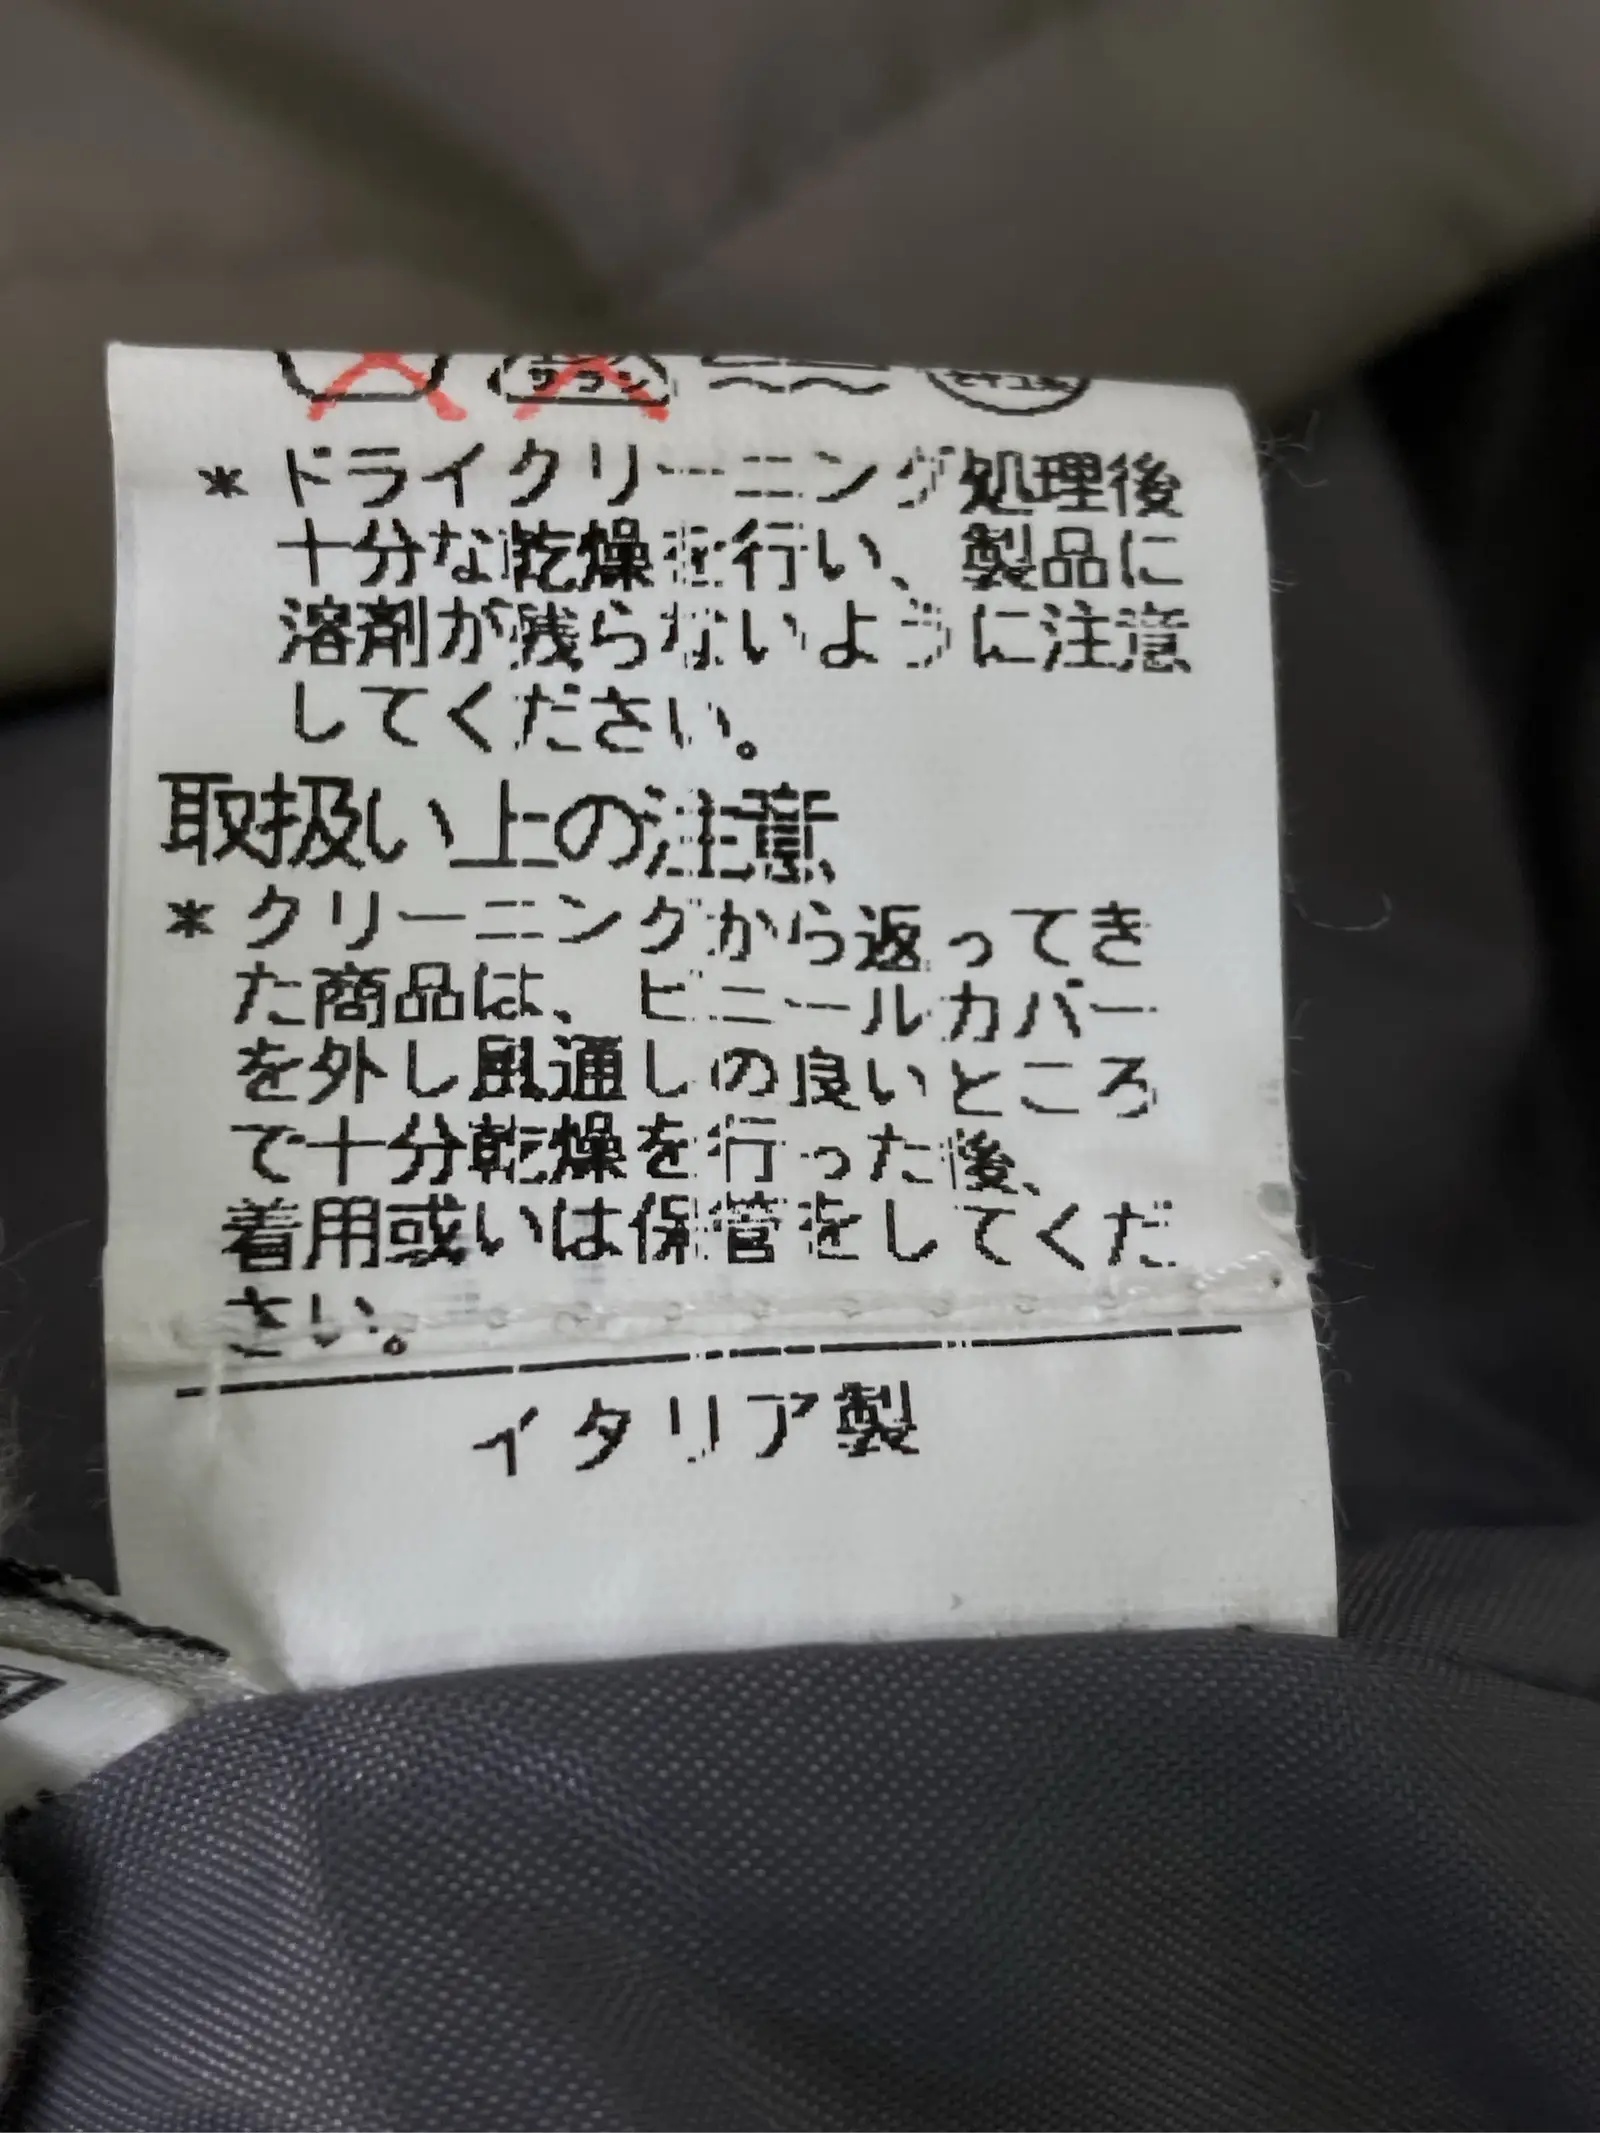 ＊ドライクリーニング処理後
十分な乾燥を行い、製品に
溶剤が残らないように注意
してください。
取扱い上の注意
＊クリーニングから返ってき
た商品は、ビニールカバー
を外し風通しの良いところ
で十分乾燥を行った後、
着用或いは保管をしてくだ
さい。
イタリア製